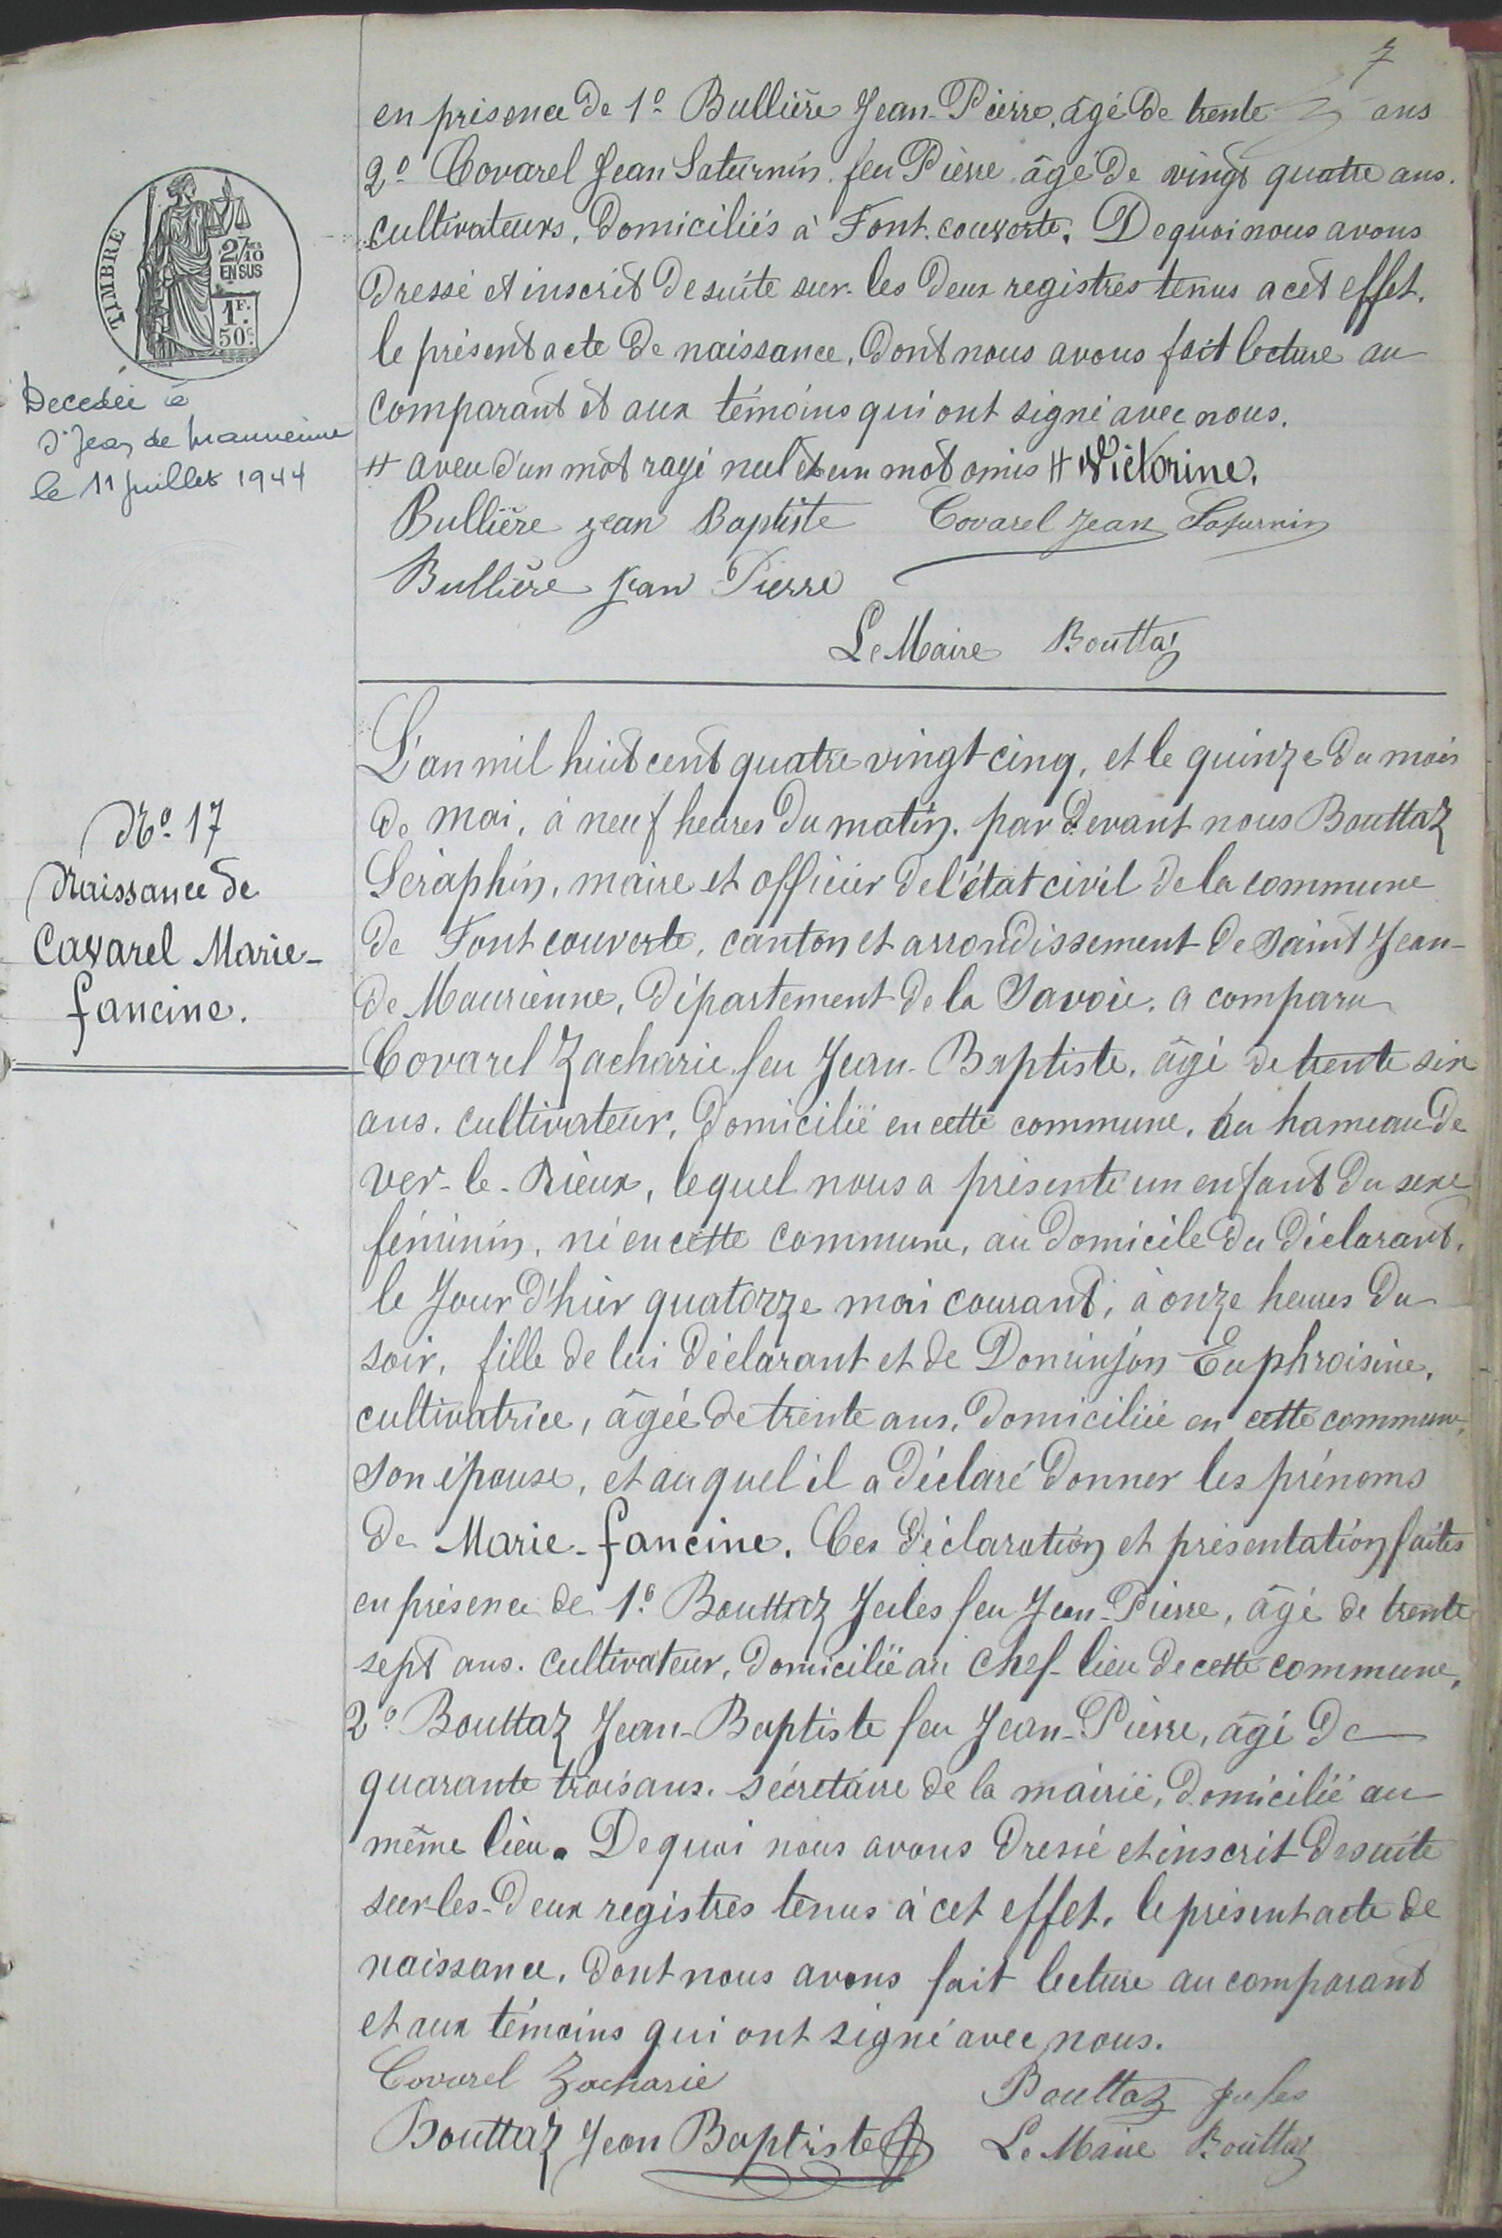 7
en présence de 1º Bullière Jean-Pierre, âgé de trente ans
2º Covarel Jean Saturnin feu Pierre âgé de vingt quatre ans.
cultivateurs, domiciliés à Fontcouverte. De quoi nous avons
dressé et inscrit de suite sur les deux registres tenus a cet effet.
le présent acte de naissance, dont nous avons fait lecture au
comparant et aux témoins qui ont signé avec nous.
# aveu d'un mot rayé nul et un mot omis # Victorine.
Bullière jean Baptiste Covarel Jean Saturnin
Bullière Jean Pierre
Le Maire Bouttaz
TIMBRE
2/10
EN SUS
1F.
50c.
Decedée à
St Jean de Maurienne
le 11 Juillet 1944
Nº 17
Naissance de
Cavarel Marie-
fancine.
L'an mil huit cent quatre vingt cinq, et le quinze du mois
de mai, à neuf heures du matin. par devant nous Bouttaz
Séraphin, maire et officier de l'état civil de la commune
de Fontcouverte, canton et arrondissement de Saint Jean-
de Maurienne, département de la Savoie. a comparu
Covarel Zacharie feu Jean-Baptiste, âgé de trente six
ans. cultivateur, domicilié en cette commune, au hameau de
ver-le-Rieux, lequel nous a présenté un enfant du sexe
féminin, né en cette commune, au domicile du déclarant,
le Jour d'hier quatorze mai courant, à onze heures du
soir, fille de lui déclarant et de Dominjon Euphroisine,
cultivatrice, âgée de trente ans, domiciliée en cette commune,
son épouse, et auquel il a déclaré donner les prénoms
de Marie-fancine. Ces déclaration et présentation faites
en présence de 1º Bouttaz Jules feu Jean-Pierre, âgé de trente
sept ans. cultivateur, domicilié au chef-lieu de cette commune,
2º Bouttaz Jean-Baptiste feu Jean-Pierre, âgé de
quarante trois ans. sécretaire de la mairie, domicilié au
même lieu. De quoi nous avons dressé et inscrit de suite
sur les deux registres tenus à cet effet, le présent acte de
naissance, dont nous avons fait lecture au comparant
et aux témoins qui ont signé avec nous.
Covarel Zacharie Bouttaz Jules
Bouttaz Jean Baptiste Le Maire Bouttaz